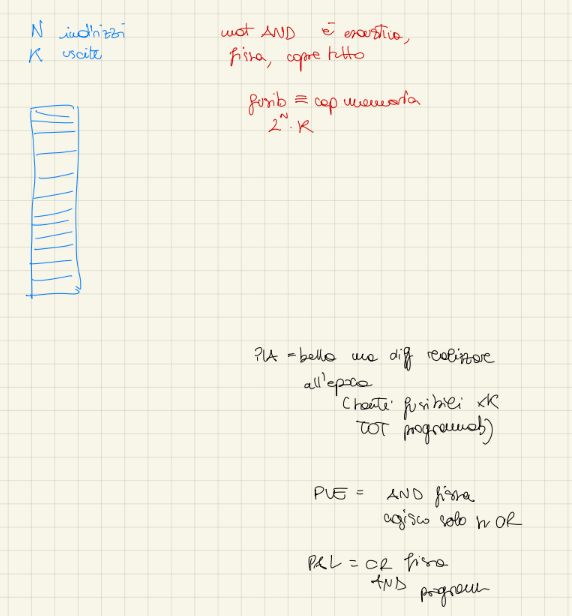 N indirizzi
K uscite
mat AND è esaustiva,
fissa, copre tutto
fusib ≡ cap memoria
2^N · K
PLA = bella ma diff realizzare
all'epoca
(tanti fusibili xK
TOT programmab)
PLE = AND fissa
agisco solo su OR
PAL = OR fissa
AND programm